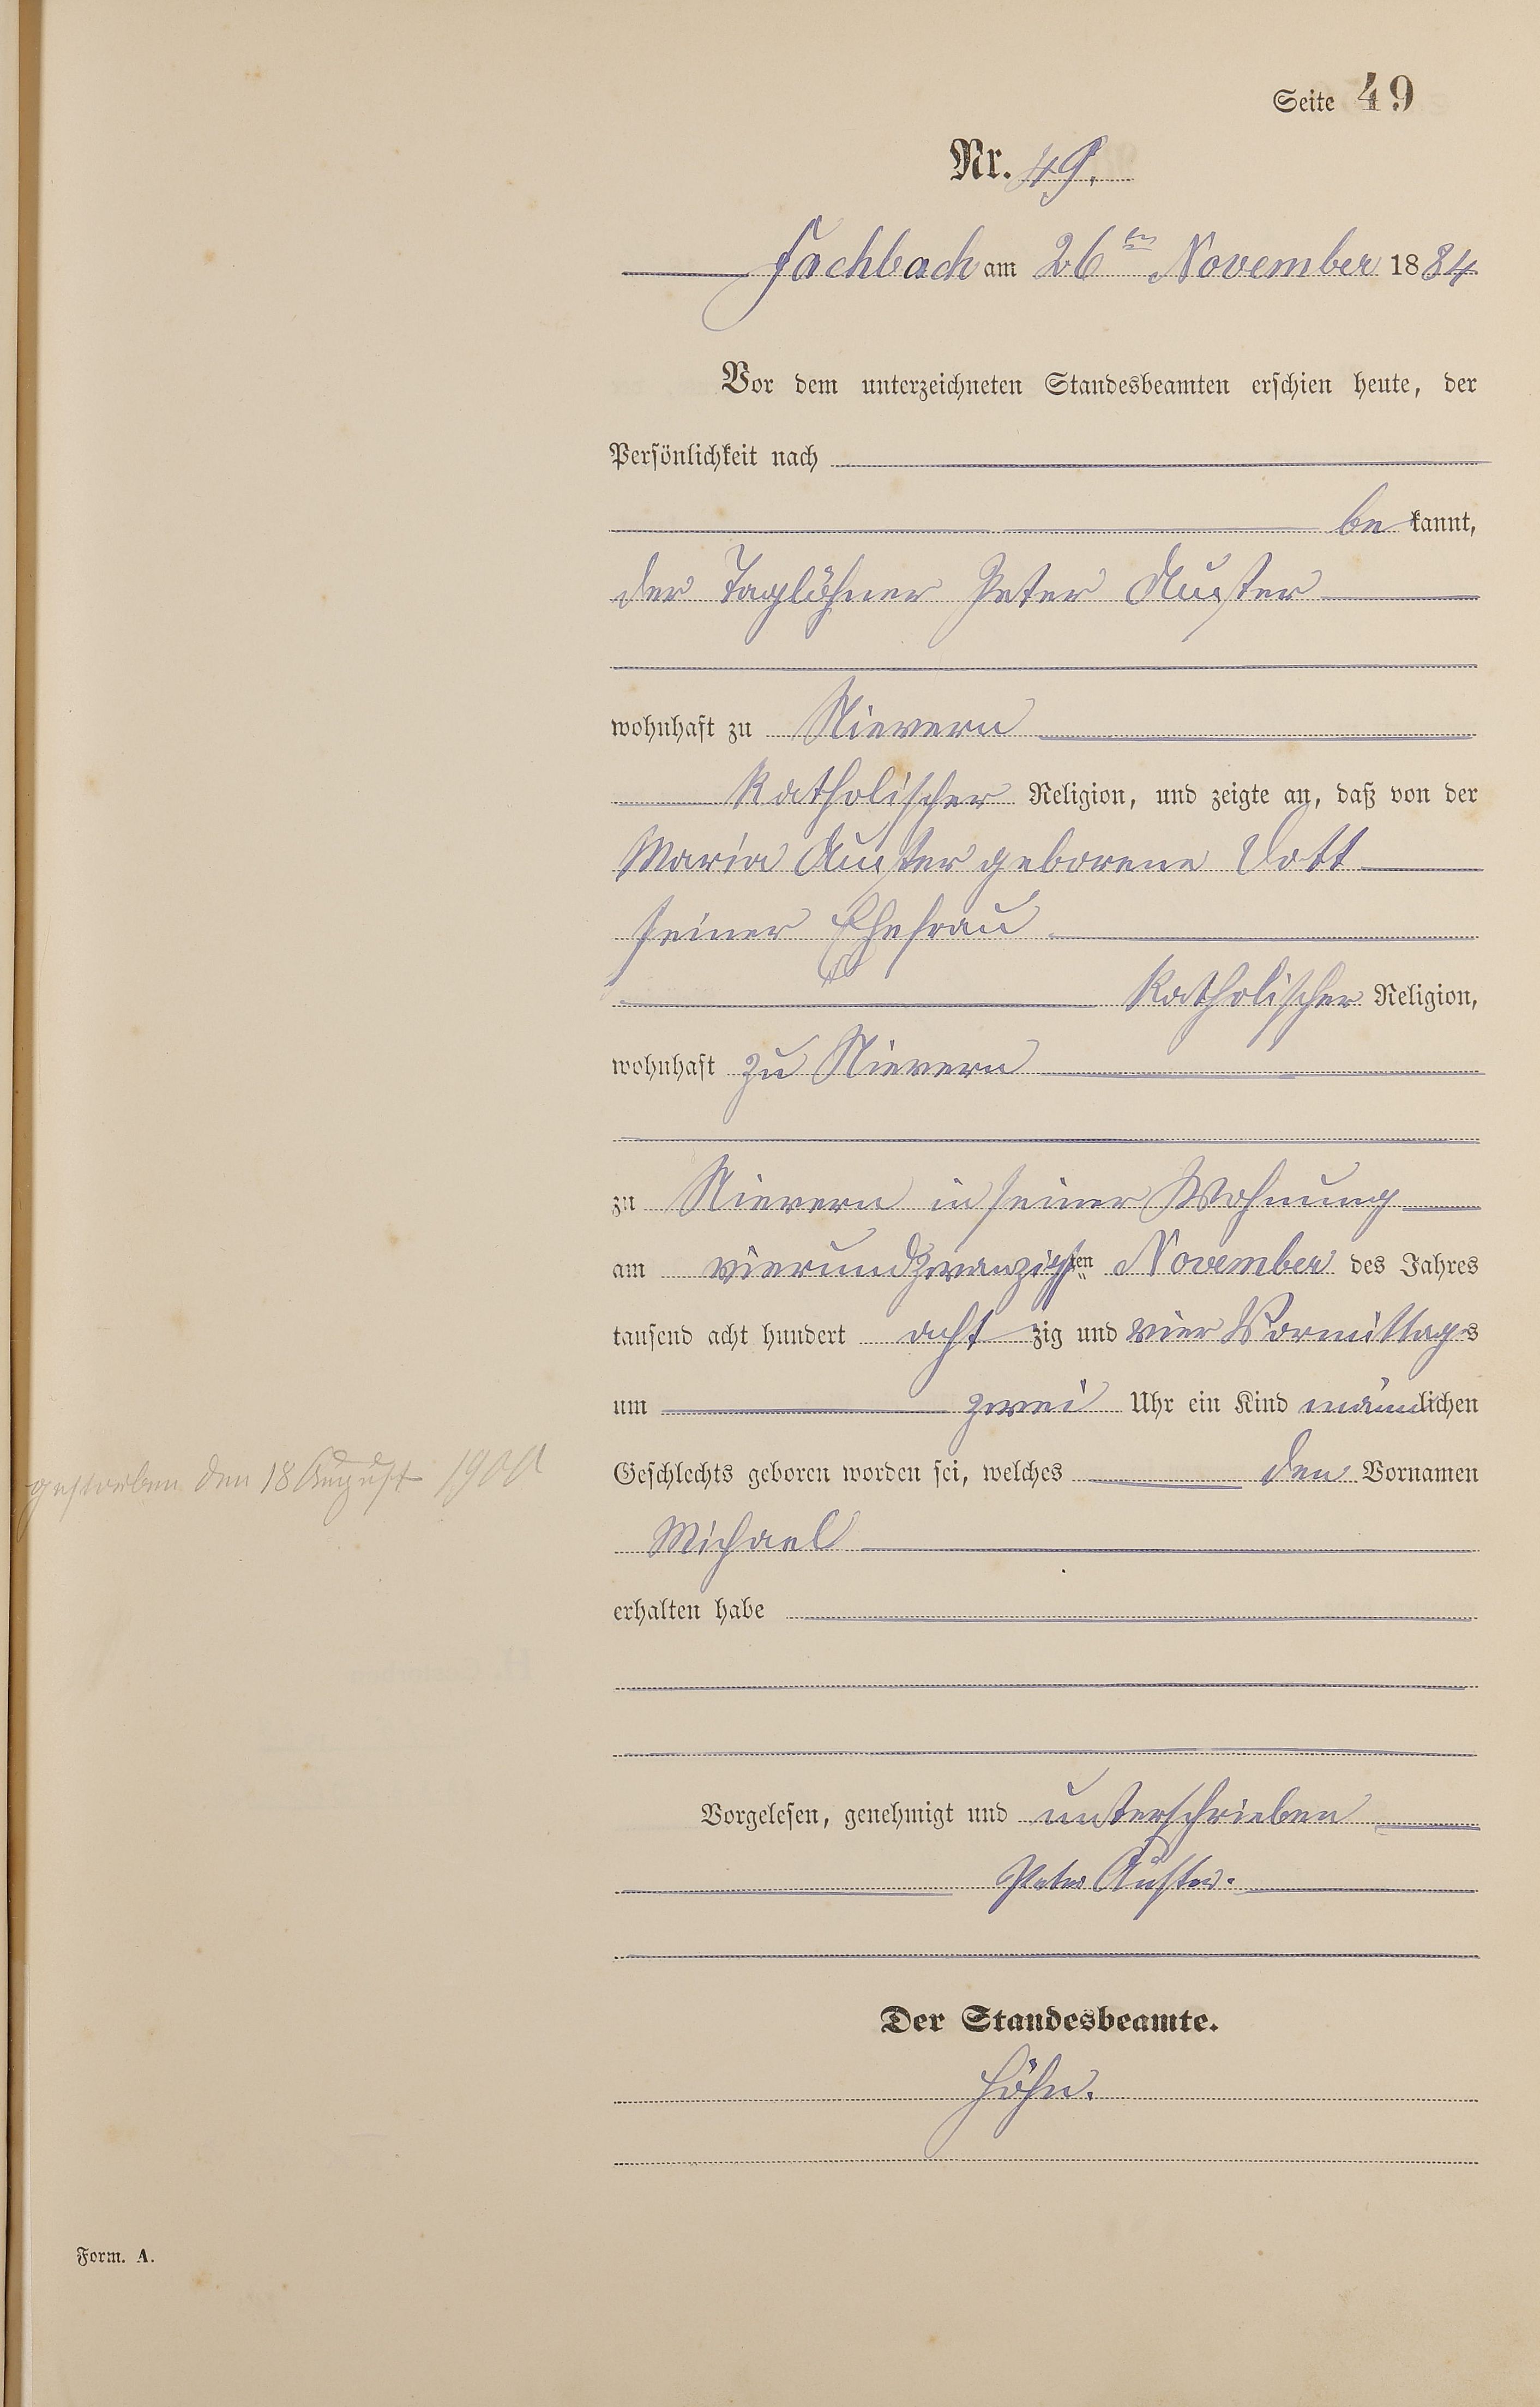 Seite 49
Nr. 49.
Fachbach am 26ten November 1884
Vor dem unterzeichneten Standesbeamten erschien heute, der
Persönlichkeit nach
be kannt,
der Taglöhner Peter Auster
wohnhaft zu Nievern
katholischer Religion, und zeigte an, daß von der
Maria Auster geborene Vott
seiner Ehefrau
katholischer Religion,
wohnhaft zu Nievern
zu Nievern in seiner Wohnung
am vierundzwanzigsten November des Jahres
tausend acht hundert acht zig und vier Vormittags
um zwei Uhr ein Kind männlichen
Geschlechts geboren worden sei, welches den Vornamen
gestorben den 18 August
Michael
erhalten habe
Vorgelesen, genehmigt und unterschrieben
Peter Auster.
Der Standesbeamte.
Höhn.
Form. A.